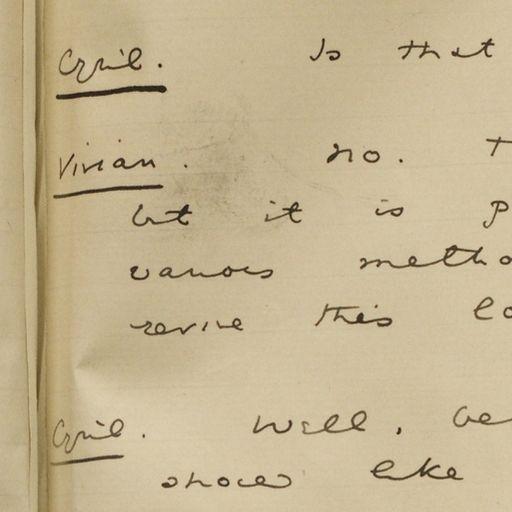 Cyril. Is that
Vivian. No. T
but it is p
various metho
revive this lo
Cyril. Well, be
should like